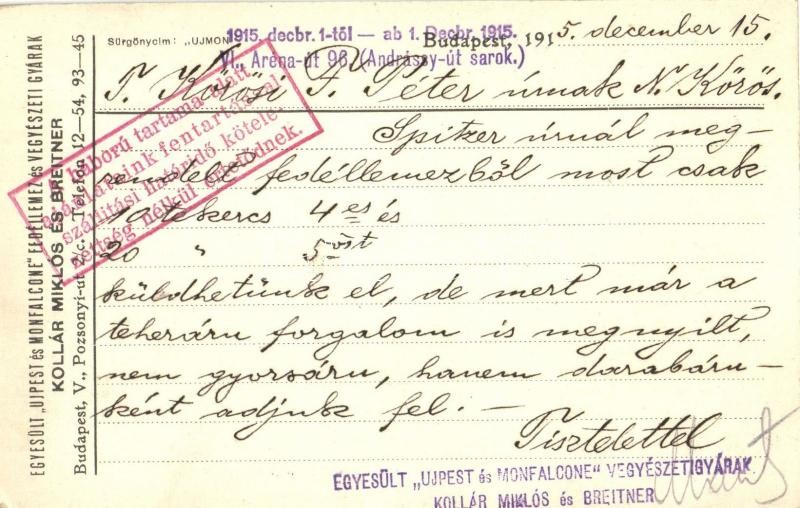 EGYESÜLT „UJPEST és MONFALCONE" FEDÉLLEMEZ és VEGYÉSZETI GYÁRAK
KOLLÁR MIKLÓS ÉS BREITNER
Budapest, V., Pozsonyi-ut 2/c. Telefon 12-54, 93-45
Sürgönycim: „UJMON
1915. decbr. 1-től — ab 1. Decbr. 1915.
VI., Aréna-út 96. (Andrássy-út sarok.)
Budapest, 1915. december 15.
A háború tartama alatt
ajánlataink fentartással
szállitási határidő kötele-
zettség nélkül értetődnek.
T. Kőrösi F. Péter úrnak N. Kőrös.
Spitzer úrnál meg-
rendelt fedéllemezből most csak
10 tekercs 4 es és
20 " 5 öst
küldhetünk el, de mert már a
teheráru forgalom is megnyilt,
nem gyorsáru, hanem darabáru-
ként adjuk fel. —
Tisztelettel
EGYESÜLT „UJPEST és MONFALCONE" VEGYÉSZETIGYÁRAK
KOLLÁR MIKLÓS és BREITNER